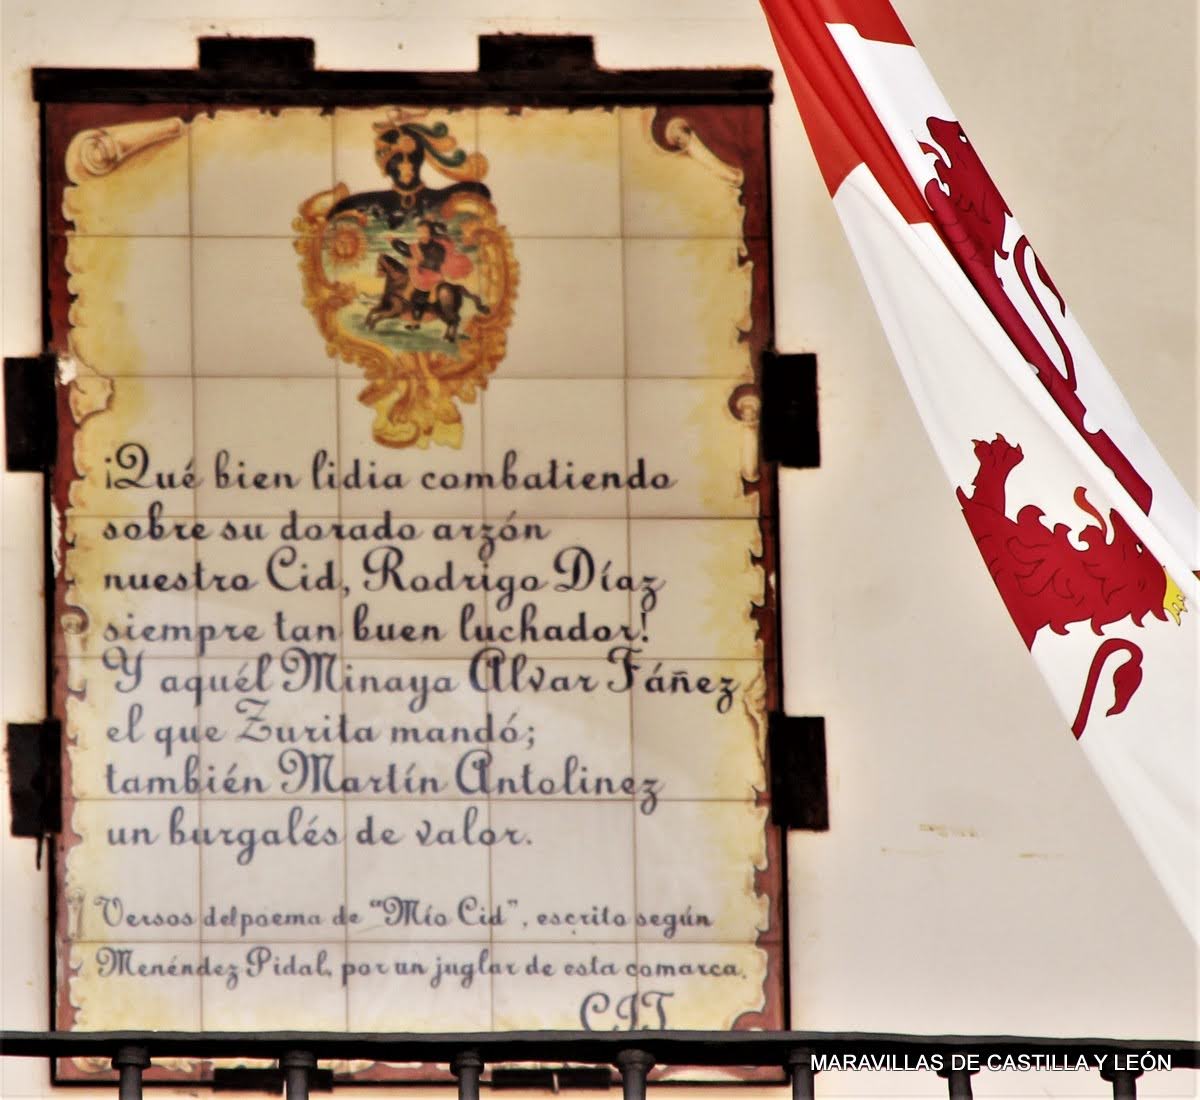 ¡Qué bien lidia combatiendo
sobre su dorado arzón
nuestro Cid, Rodrigo Díaz
siempre tan buen luchador!
Y aquél Minaya Alvar Fáñez
el que Zurita mandó;
también Martín Antolinez
un burgalés de valor.
Versos del poema de "Mío Cid", escrito según
Menéndez Pidal, por un juglar de esta comarca.
CIT
MARAVILLAS DE CASTILLA Y LEÓN